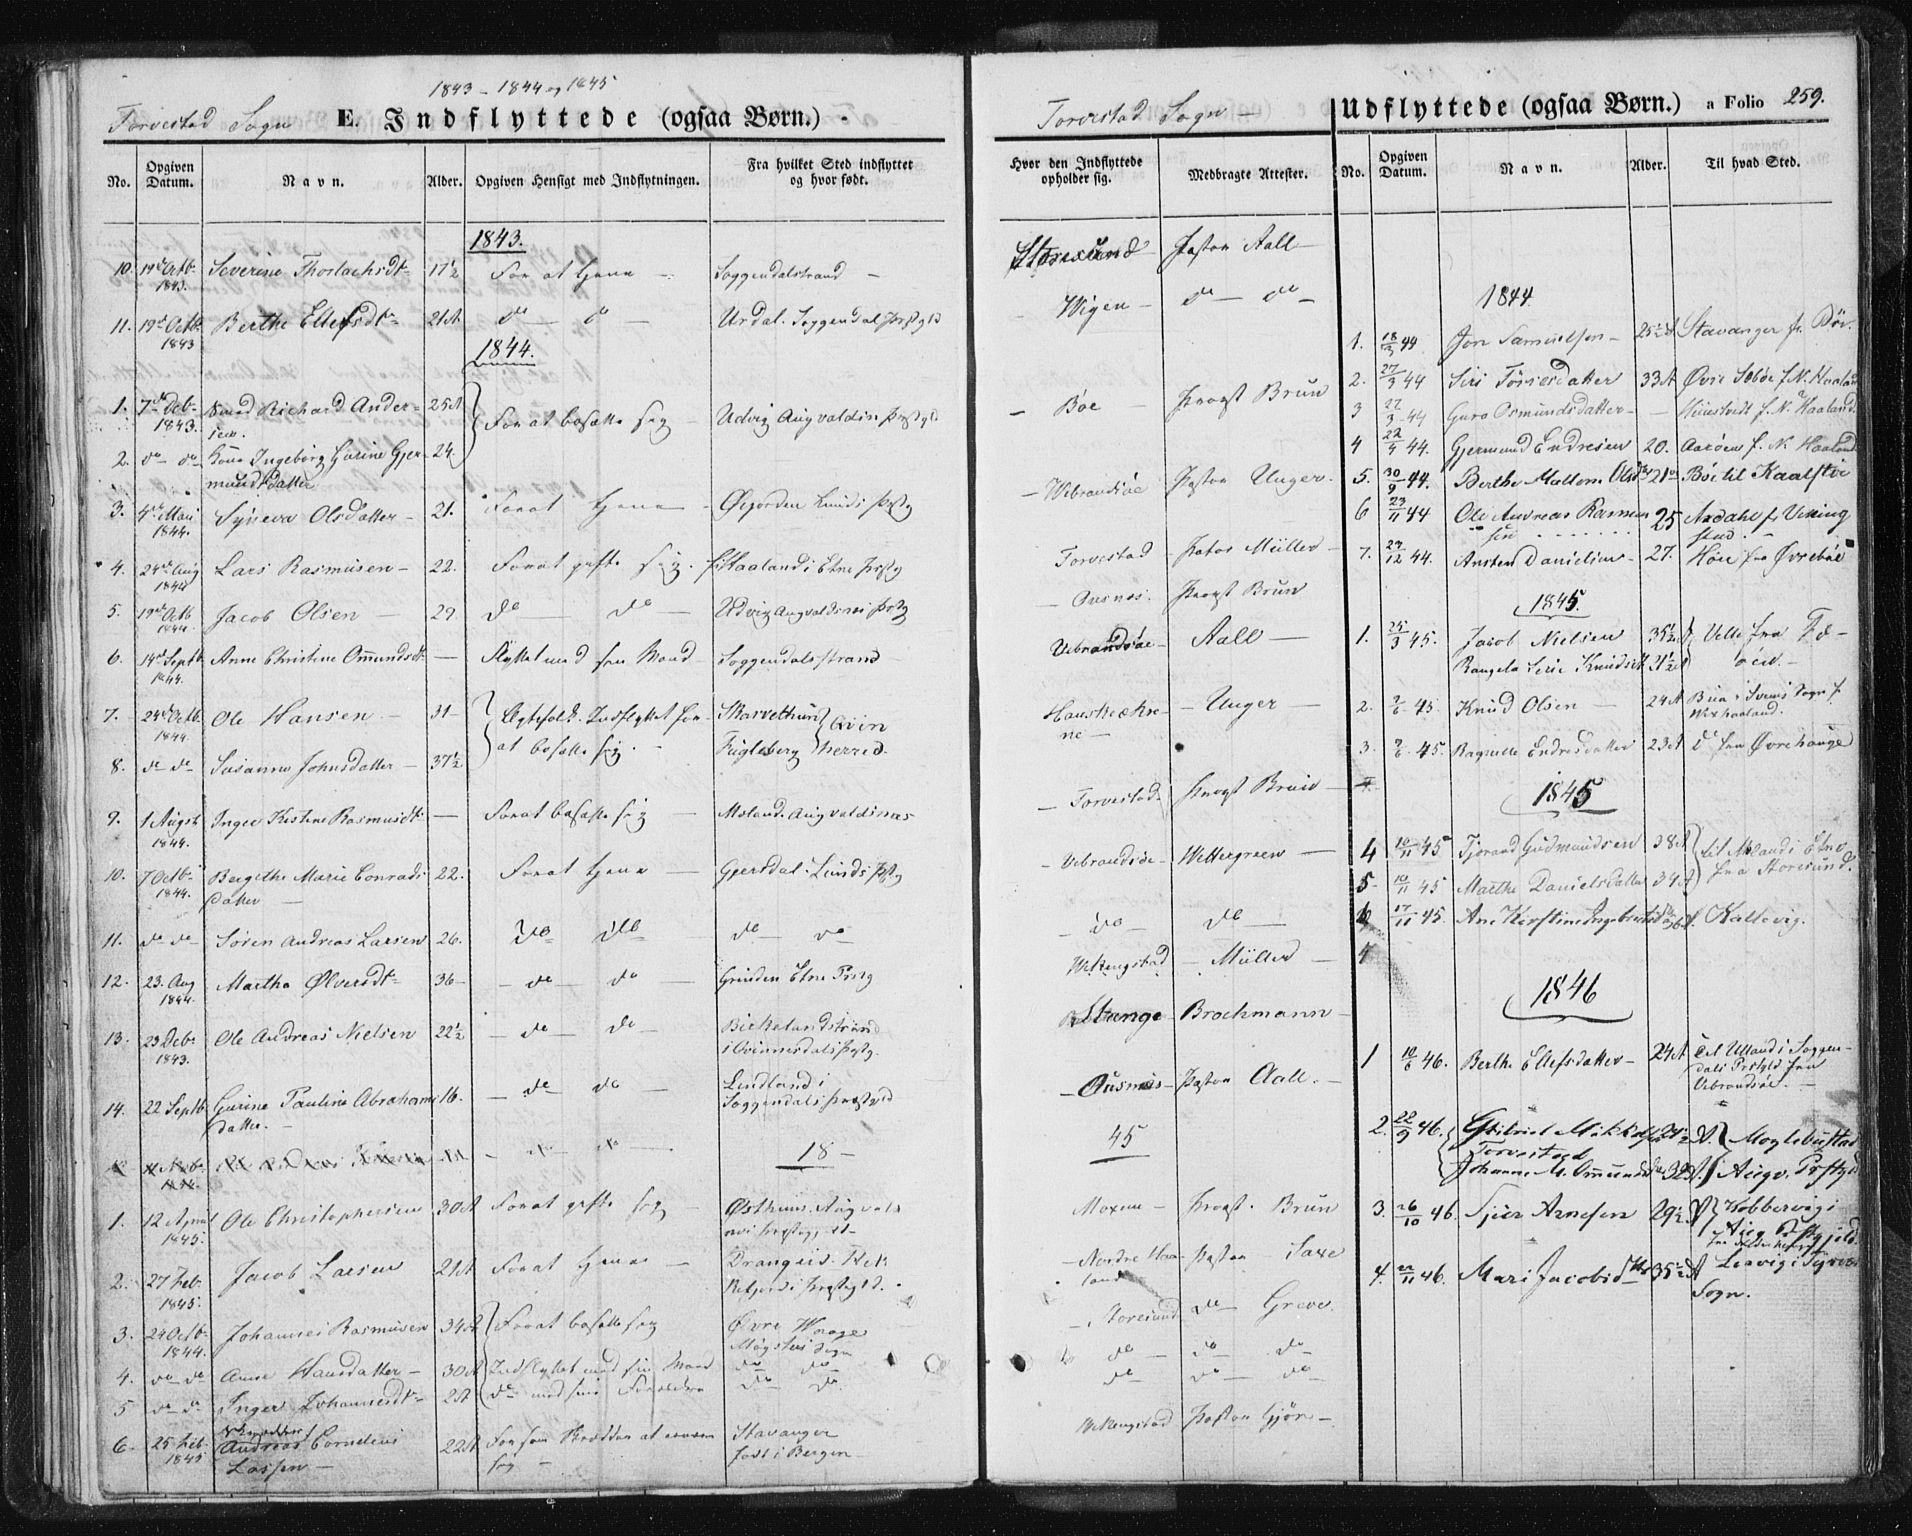 1843 - 1844 og 1845
Torvestad Sogn E. Indflyttede (ogsaa Børn.)
No. Opgiven Datum. Navn. Alder. Opgiven Hensigt med Indflytningen. Fra hvilket Sted indflyttet og hvor født.
1843.
10. 19de Octb. 1843. Severine Thorlachsdt 17½ For at tjene Soggendalstrand
11. 19de Octb. 1843 Berthe Ellefsdt 21 A do do Urdal. Soggendal Prstgld
1844.
1. 7de Deb. 1843. Richard Andersen. 25 A For at bosætte sig Udvig Augvaldsn. Præstgld
2. do do Kone Ingeborg Gurine Gjermundsdatter 24.
3. 4de Mai 1844. Syneva Olsdatter 21. For at tjene Lunds Præstg
4. 24de Aug 1844 Lars Rasmusen 22. For at gifte sig. Haaland i Etne Prstg
5. 19de Octb 1844. Jacob Olsen 29 do do Udvig Augvaldsnæs Prstg
6. 14de Septb 1844. Anne Christine Ommundsdt Flyttet med sin Mand Soggendalsstrand
7. 24de Octb. 1844. Ole Hansen 31 Ægtefolk. Indflyttet for at bosætte sig. Skarvethun Qvinherred.
8. do do Susanne Johnsdatter 37½ Fugleberg
9. 1 Augst 1844. Inger Kirstine Rasmusdt For at bosætte sig Meland. Augvaldsnæs
10. 7 Octb 1844. Bergithe Marie Conradsdatter 22. For at tjene Gjersdal. Lunds Prstg
11. do do Søren Andreas Larsen 26. do do do do
12. 23. Aug 1844. Martha Ølversdt 36 do do Grinden Etne Prstg
13. 23 Deb. 1843. Ole Andreas Nielsen 22½ do do Birkelandstrand i Qvinnesdals Prstg.
14. 22 Septb. Gurine Pauline Abrahamsdatter. 16. do do Lindland i Soggendals Præstgld
18
1. 12 April 1845. Ole Christophersen 30 A For at gifte sig Østhuus. Augvaldsnæs Præstegjeld
2. 27 Feb. 1845. Jacob Larsen 21 A For at tjene Drangeid. Flekkefjords Præstgld.
3. 24 Octb. 1844. Johannes Rasmusen 34 A For at bosætte sig Øvre Waage Møgsters Sogn
4. do do Anne Hansdatter 30 A Indflyttet med sin Mand do do
5 do do Inger Johannesdt 2 A do med sine Forældre do do.
6. 25 Feb. 1845 Skrædder Andreas Cornelius Lassen 22 A For som Skrædder at ernære sig Stavanger født i Bergen
Torvestad Sogn
Hvor den Indflyttede opholder sig. Medbragte Attester.
Storesund Pastor Aall
Wigen do do
Bøe Provst Brun
Wibrandsøe Pastor Unger
Torvestad Pastor Müller
Ousnæs. Provst Brun
Vibrandsøe Aall
Hauskeekrene Unger
Torvestad. Provst Brun
Vibrandsøe Wettergreen
do do
Wikingstad Müller
Stange Brochmann
Ousnæs Pastor Aall.
45
Moxem Provst. Brun
Nordre Haaland Pastor Saxe
Storesund do Greve.
do do do
do do do
Wikingstad Pastor Gjør
Udflyttede (ogsaa Børn.) a Folio 259.
No. Opgiven Datum. Navn. Alder. Til hvad Sted.
1844
1. 18/3 44 Jon Samuelsen 25½ A Stavanger fr. Bøe.
2. 27/3 44 Siri Tørresdatter 33 A Øvre Sæbøe f. N. Haaland
3 27/3 44 Guro Osmundsdatter f. N. Haaland.
4 22/4 44. Gjermund Endresen 20. Aarøen f. N. Haaland
5. 30/9 44. Berthe Malene Olsdtr 21 Bøe til Kaalstøe
6 23/11 44 Ole Andreas Rasmussen 25 Axdahl fr Vikingstad.
7. 27/12 44. Austen Danielsen 27. Høie fra Øvrebøe
1845.
1. 25/3 45. Jacob Nielsen 35½ Velle fra Fæøen.
Rangela Serie Knudsdt 21½ A
2. 2/6 45. Knud Olsen 24 A Bua i Sveens Sogn f. Nixhaaland.
3. 2/6 45. Ragnille Endresdatter 23 A do fra Øvrehauge
1845
4 10/11 45 Tjorand Gudmundsen 38 A til Meland i Etne fra Storesund.
5 10/11 45 Marthe Danielsdatter 34 A
6 17/11 45. Ane Kirstine Ingebretsdtr 36 A. Kallevig.
1846
1 10/6 46. Berthe Ellefsdatter 24 A til Ueland i Soggendals Prstgld fra Vibrandsøe.
2. 22/9 46. Gabriel Mikkelsen Torvestad A. Møglebustad
Johanne M. Ommundsdtr 32 A. i Augv. Prstgld
3. 26/10 46. Sjur Arnesen 29½ A Kobbervig i Aug Prstgjeld.
4. 22/11 46. Mari Jacobsdtr 35½ A Leervig i Tysnæs Sogn.